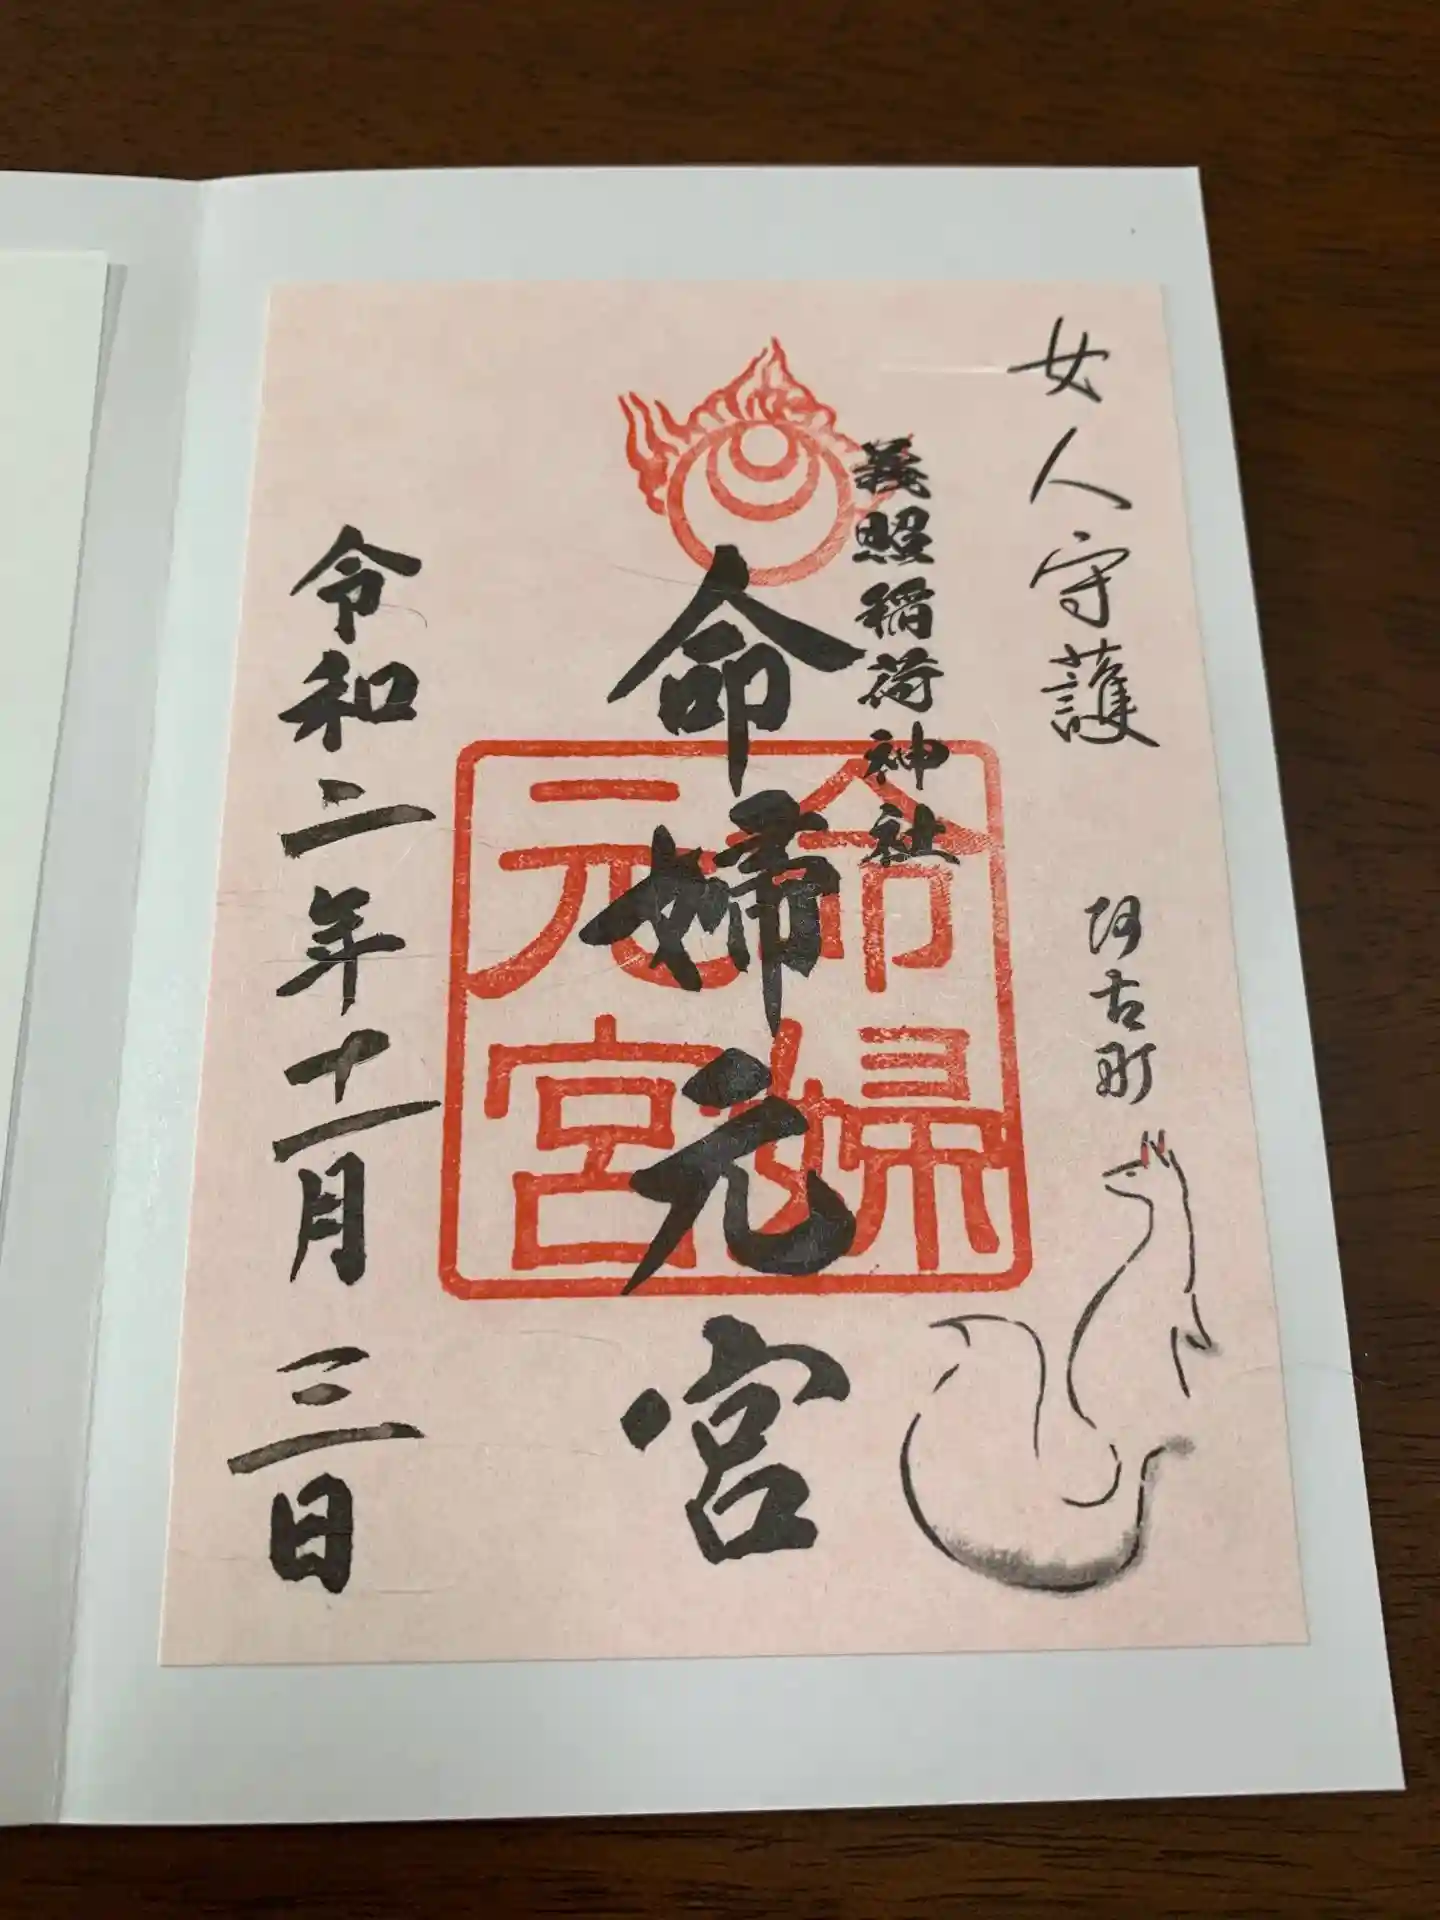 女人守護
阿古町
義照稲荷神社
命婦元宮
命婦
元宮
令和二年十一月三日